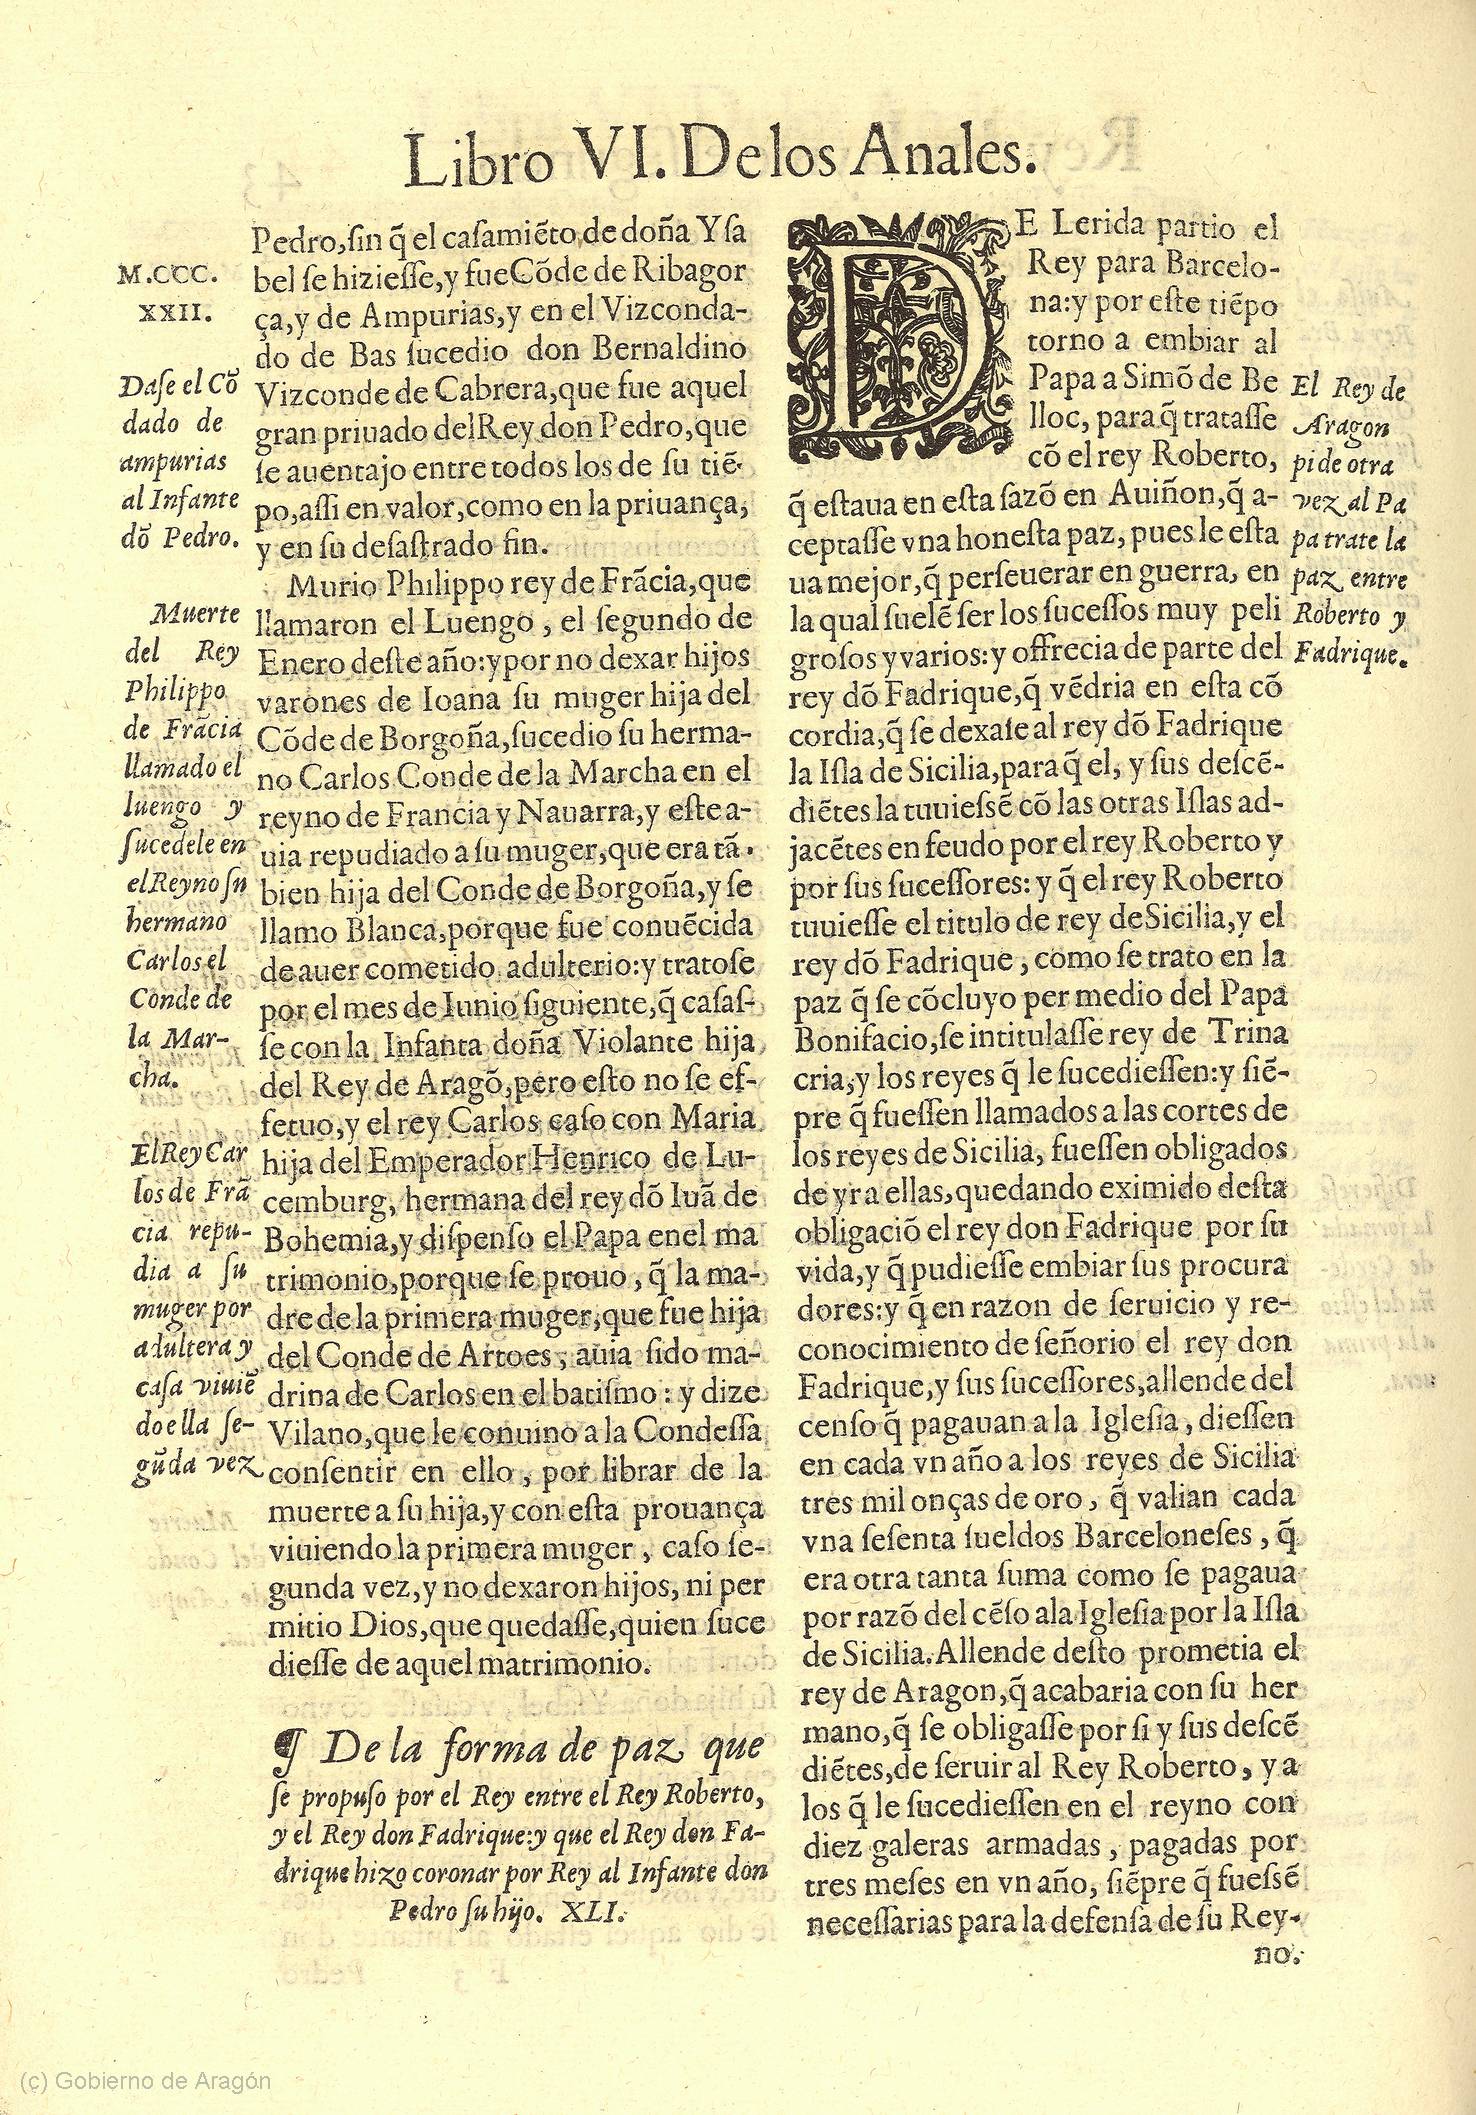 Libro VI. De los Anales.
M.CCC.
XXII.
Daſe el Cõ
dado de
ampurias
al Infante
dõ Pedro.
Muerte
del Rey
Philippo
de Frãcia
llamado el
luengo y
ſucedele en
el Reyno ſu
hermano
Carlos el
Conde de
la Mar-
cha.
El Rey Car
los de Frã
cia repu-
dia a ſu
muger por
adultera y
caſa viuiẽ
do ella ſe-
gũda vez
Pedro, ſin q̃ el caſamiẽto de doña Yſa
bel ſe hizieſſe, y fue Cõde de Ribagor
ça, y de Ampurias, y en el Vizconda-
do de Bas ſucedio don Bernaldino
Vizconde de Cabrera, que fue aquel
gran priuado del Rey don Pedro, que
ſe auentajo entre todos los de ſu tiẽ-
po, aſſi en valor, como en la priuança,
y en ſu deſaſtrado fin.
Murio Philippo rey de Frãcia, que
llamaron el Luengo, el ſegundo de
Enero deſte año: y por no dexar hijos
varones de Ioana ſu muger hija del
Cõde de Borgoña, ſucedio ſu herma-
no Carlos Conde de la Marcha en el
reyno de Francia y Nauarra, y eſte a-
uia repudiado a ſu muger, que era tã.
bien hija del Conde de Borgoña, y ſe
llamo Blanca, porque fue conuẽcida
de auer cometido adulterio: y tratoſe
por el mes de Iunio ſiguiente, q̃ caſaſ-
ſe con la Infanta doña Violante hija
del Rey de Aragõ, pero eſto no ſe ef-
fetuo, y el rey Carlos caſo con Maria
hija del Emperador Henrico de Lu-
cemburg, hermana del rey dõ Iuã de
Bohemia, y diſpenſo el Papa en el ma
trimonio, porque ſe prouo, q̃ la ma-
dre de la primera muger, que fue hija
del Conde de Artoes, auia ſido ma-
drina de Carlos en el batiſmo: y dize
Vilano, que le conuino a la Condeſſa
conſentir en ello, por librar de la
muerte a ſu hija, y con eſta prouança
viuiendo la primera muger, caſo ſe-
gunda vez, y no dexaron hijos, ni per
mitio Dios, que quedaſſe, quien ſuce
dieſſe de aquel matrimonio.
¶ De la forma de paz que
ſe propuſo por el Rey entre el Rey Roberto,
y el Rey don Fadrique: y que el Rey don Fa-
drique hizo coronar por Rey al Infante don
Pedro ſu hijo. XLI.
DE Lerida partio el
Rey para Barcelo-
na: y por eſte tiẽpo
torno a embiar al
Papa a Simõ de Be
lloc, para q̃ trataſſe
cõ el rey Roberto,
q̃ eſtaua en eſta ſazõ en Auiñon, q̃ a-
ceptaſſe vna honeſta paz, pues le eſta
ua mejor, q̃ perſeuerar en guerra, en
la qual ſuelẽ ſer los ſuceſſos muy peli
groſos y varios: y offrecia de parte del
rey dõ Fadrique, q̃ vẽdria en eſta cõ
cordia, q̃ ſe dexaſe al rey dõ Fadrique
la Iſla de Sicilia, para q̃ el, y ſus deſcẽ-
diẽtes la tuuieſsẽ cõ las otras Iſlas ad-
jacẽtes en feudo por el rey Roberto y
por ſus ſuceſſores: y q̃ el rey Roberto
tuuieſſe el titulo de rey de Sicilia, y el
rey dõ Fadrique, como ſe trato en la
paz q̃ ſe cõcluyo per medio del Papa
Bonifacio, ſe intitulaſſe rey de Trina
cria, y los reyes q̃ le ſucedieſſen: y ſiẽ-
pre q̃ fueſſen llamados a las cortes de
los reyes de Sicilia, fueſſen obligados
de yr a ellas, quedando eximido deſta
obligaciõ el rey don Fadrique por ſu
vida, y q̃ pudieſſe embiar ſus procura
dores: y q̃ en razon de ſeruicio y re-
conocimiento de ſeñorio el rey don
Fadrique, y ſus ſuceſſores, allende del
cenſo q̃ pagauan a la Igleſia, dieſſen
en cada vn año a los reyes de Sicilia
tres mil onças de oro, q̃ valian cada
vna ſeſenta ſueldos Barceloneſes, q̃
era otra tanta ſuma como ſe pagaua
por razõ del cẽſo a la Igleſia por la Iſla
de Sicilia. Allende deſto prometia el
rey de Aragon, q̃ acabaria con ſu her
mano, q̃ ſe obligaſſe por ſi y ſus deſcẽ
diẽtes, de ſeruir al Rey Roberto, y a
los q̃ le ſucedieſſen en el reyno con
diez galeras armadas, pagadas por
tres meſes en vn año, ſiẽpre q̃ fueſsẽ
neceſſarias para la defenſa de ſu Rey-
no.
El Rey de
Aragon
pide otra
vez al Pa
pa trate la
paz entre
Roberto y
Fadrique.
(c) Gobierno de Aragón